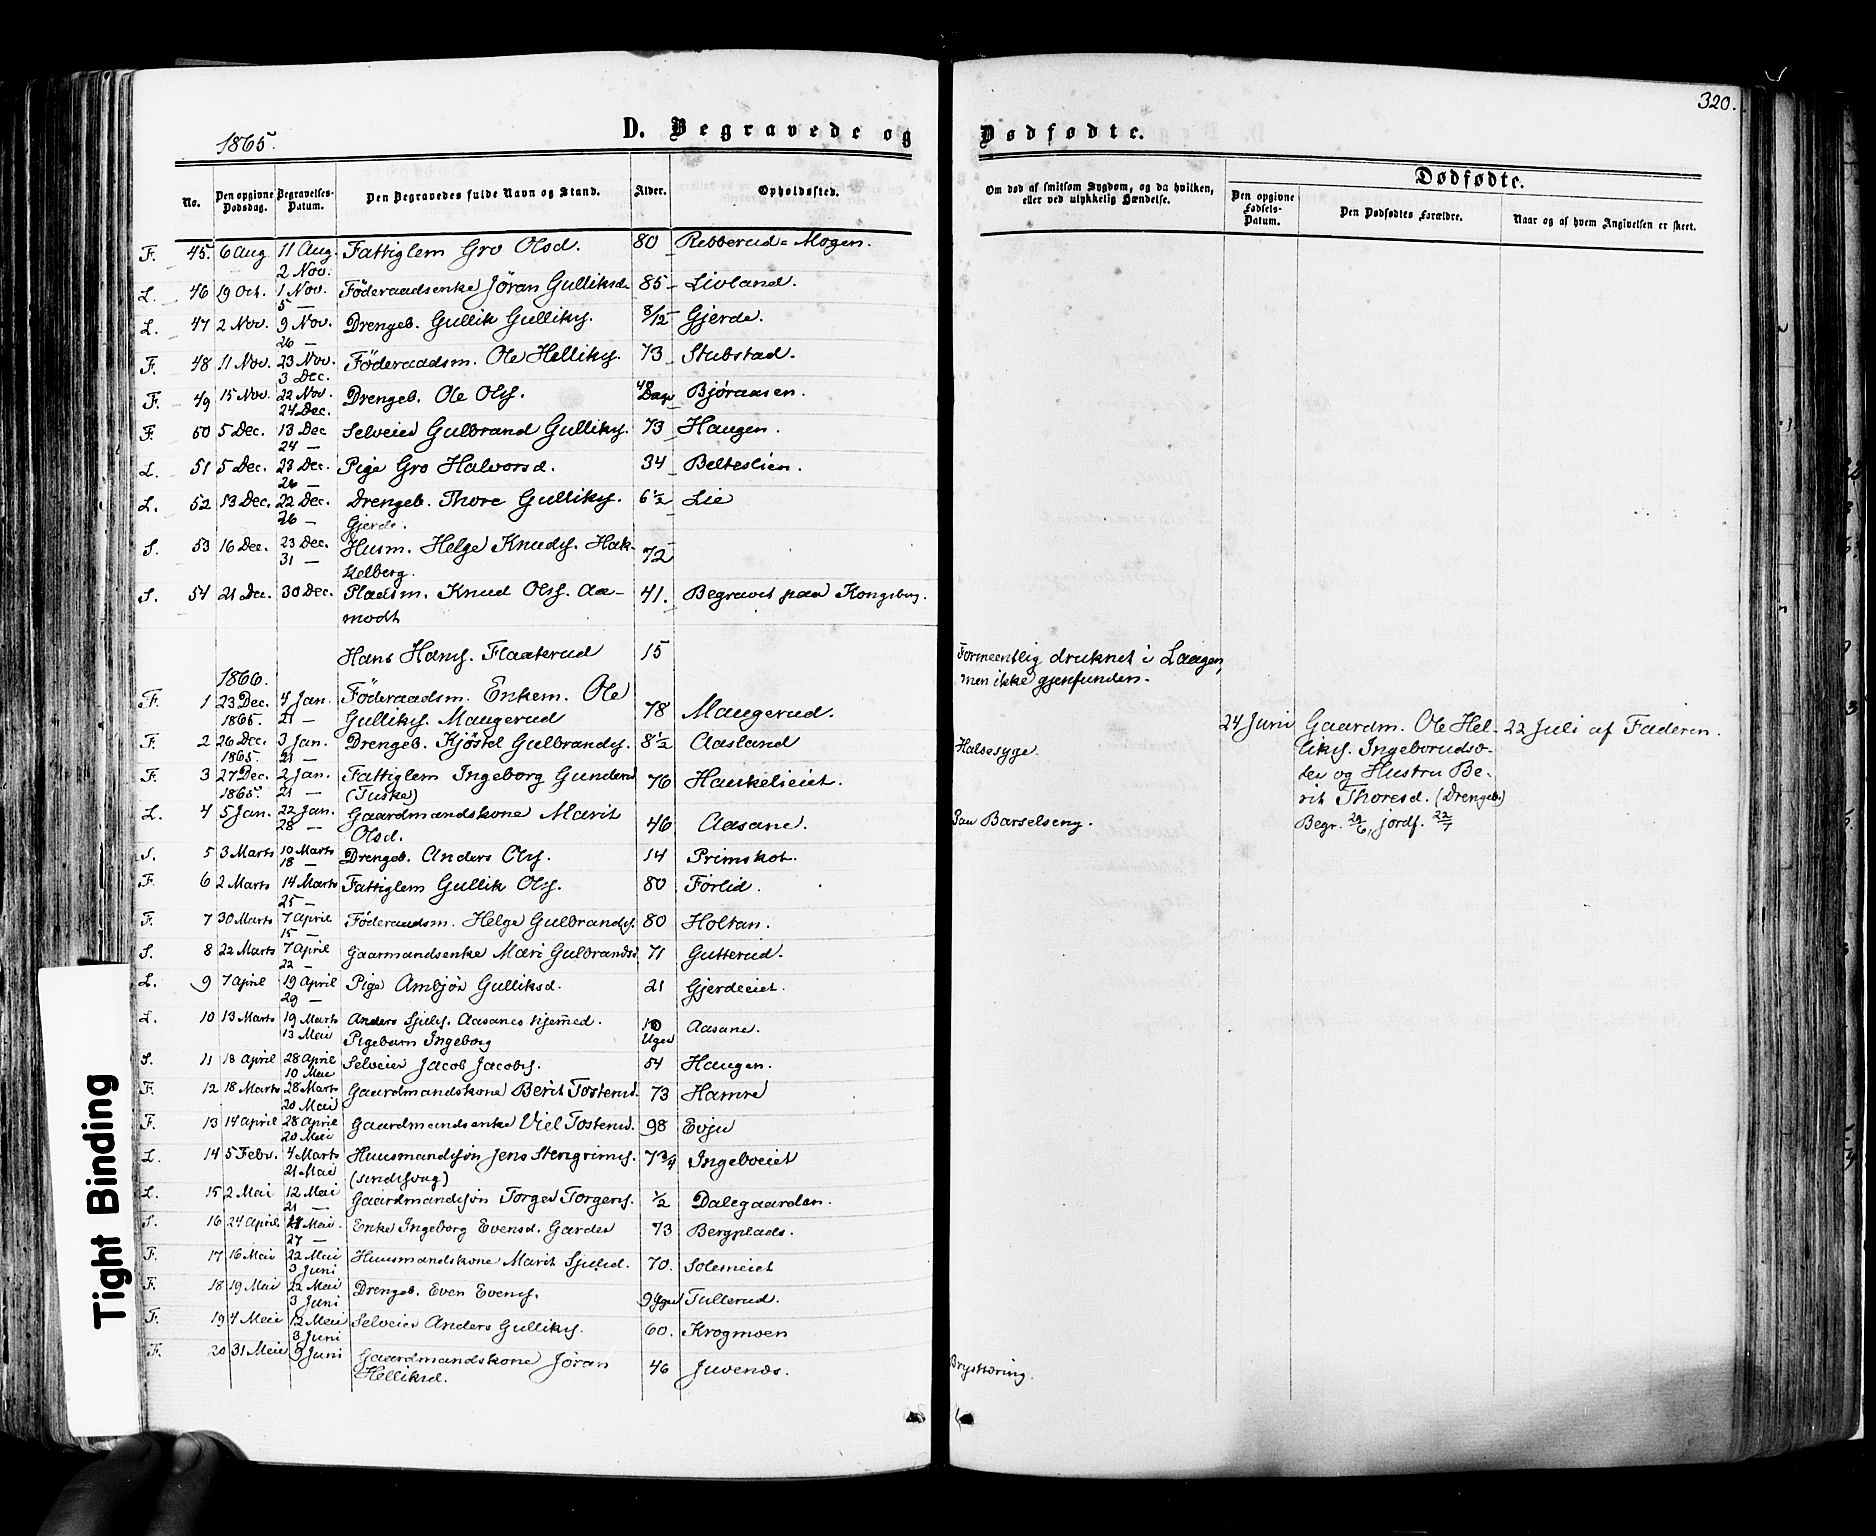 320.
1865.
D. Begravede og Dødfødte.
No. Den opgivne Dødsdag. Begravelses-Datum. Den Begravedes fulde Navn og Stand. Alder. Opholdssted.
Om død af smitsom Sygdom, og da hvilken, eller ved ulykkelig Hændelse.
Dødfødte.
Den opgivne Fødsels-Datum. Den Dødfødtes Forældre. Naar og af hvem Angivelsen er skeet.
F. 45. 6 Aug 11 Aug. Fattiglem Gro Olsd. 80 Rebberud-Mogen.
2 Nov.
L. 46 19 Oct. 1 Nov. Föderaadsenke Jöran Gulliksd. 85 Livland.
5 —
L. 47 2 Nov. 9 Nov. Drengeb. Gullik Gulliks. 8/12 Gjerde.
26 —
F. 48 11 Nov. 23 Nov. Föderaadsm. Ole Helliks. 73 Stubstad.
3 Dec.
F. 49 15 Nov. 22 Nov. Drengeb. Ole Ols. Dage Björaasen.
24 Dec.
F. 50 5 Dec. 13 Dec Selveier Gulbrand Gulliks. 73 Haugen.
24 —
L. 51 5 Dec. 23 Dec. Pige Gro Halvorsd. 34 Belteslien.
26 —
L. 52 13 Dec. 22 Dec. Drengeb. Thore Gulliks. 6 1/2 Lie
26 — Gjerde.
S. 53 16 Dec. 23 Dec. Husm. Helge Knuds. Hak- 72
31 — kelberg.
S. 54 21 Dec. 30 Dec. Pladsm. Knud Ols. Aa- 41. Begravet paa Kongsberg.
modt
Hans Hans. Flaaterud 15 Formeentlig druknet i Laagen,
men ikke gjenfunden.
1866.
F. 1 23 Dec. 4 Jan. Föderaadsm. Enkem. Ole
1865. 21 — Gulliks. Maugerud 78 Maugerud.
F. 2 26 Dec. 3 Jan. Drengeb. Kjöstel Gulbrands. 8 1/2 Aasland Halsesyge.
1865. 21 —
F. 3 27 Dec. 2 Jan. Fattiglem Ingeborg Gundersd 76 Haukelieiet.
1865. 21 — (Tuske)
L. 4 5 Jan. 22 Jan. Gaardmandskone Marit 46 Aasane. Paa Barselseng.
28 — Olsd.
S. 5 3 Marts 10 Marts Drengeb. Anders Ols. 14 Primskot.
18 —
F. 6 2 Marts 14 Marts Fattiglem Gullik Ols. 80 Förlid.
25 —
F. 7 30 Marts 7 April Föderaadsm. Helge Gulbrands. 80 Holtan.
15 —
S. 8 22 Marts 7 April Gaarmandsenke Mari Gulbrandsd. 71 Gutterud.
22 —
L. 9 7 April 19 April Pige Ambjör Gulliksd. 21 Gjerdeeiet.
29 —
L. 10 13 Marts 19 Marts Anders Sjuls. Aasanes hjemed. 10 Aasane.
13 Mai Pigebarn Ingeborg Uger
S. 11 18 April 28 April Selveier Jacob Jacobs. 54 Haugen.
10 Mai
F. 12 18 Marts 28 Marts Gaardmandskone Berit Tostensd. 73 Hamre
20 Mai
F. 13 14 April 28 April Gaardmandsenke Viel Tostensd. 98 Evju
20 Mai
L. 14 5 Febr. 4 Marts Huusmandssön Jens Stengrims. 7 3/4 Ingebveiet
21 Mai (sindssvag)
L. 15 2 Mai 12 Mai Gaardmandssön Torger Torgers. 1/2 Dalegaarden.
21 —
S. 16 24 April Mai. Enke Ingeborg Evensd. Garder 73 Bergplads.
27 —
F. 17 16 Mai 22 Mai Huusmandskone Marit Sjulsd. 70. Solemeiet
3 Juni
F. 18 19 Mai 22 Mai Drengeb. Even Evens. 9 Uger Tullerud.
3 Juni
F. 19 4 Mai 12 Mai Selveier Anders Gulliks. 60. Krogmoen
3 Juni
F. 20 31 Mai 9 Juni Gaardmandskone Jöran 46 Juvenæs. Brysttæring.
Helliksd.
24 Juni Gaardm. Ole Hel- 22 Juli af Faderen.
liks. Ingeborudso-
ter og Hustru Be-
rit Thoresd. (Drengeb.)
Begr. 29/6, jordf. 22/7
Tight Binding